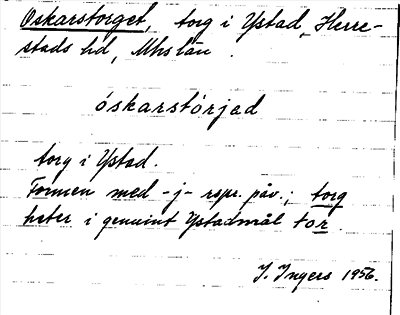 Oskarstorget, torg i Ystad, Herre-
stads hd, Mhs län.
óskarstórjad
torg i Ystad.
Formen med -j- rspr. påv.; torg
heter i genuint Ystadmål tor.
I. Ingers 1956.